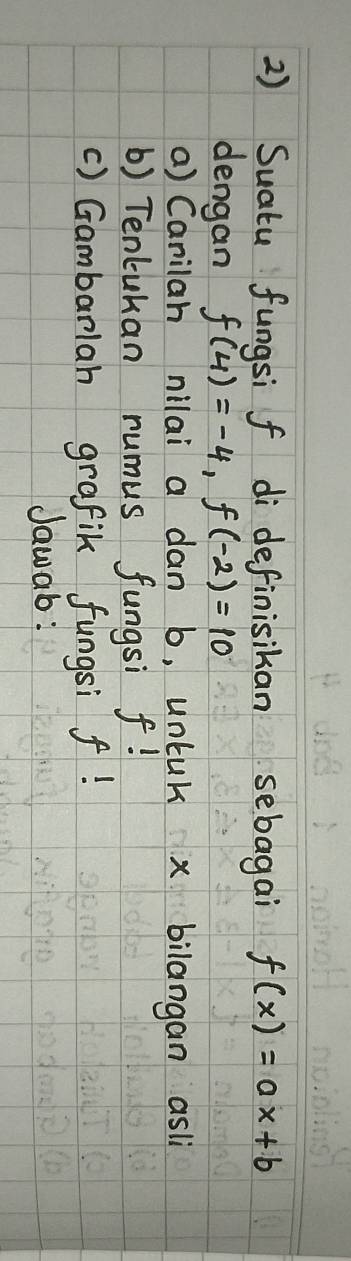 2) Suatu fungsi f di definisikan sebagai f(x) = ax + b
dengan f(4) = -4, f(-2) = 10
a) Carilah nilai a dan b, untuk x bilangan asli
b) Tentukan rumus fungsi f!
c) Gambarlah grafik fungsi f!
Jawab: